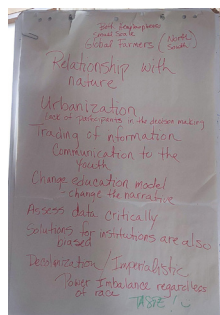 Small Scale
Global Farmers (North
South.
Relationship with
nature
Urbanization
Lack of participants in the decision making
Trading of information
Communication to the
Youth
Change education model
- change the narrative
Assess data critically
Solutions for institutions are also
biased
Decolonization / Imperialistic
Power Imbalance regardless
of race
TASTE!